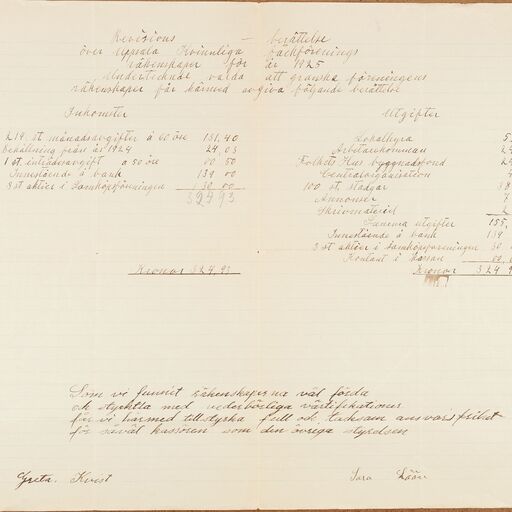 Revisions - berättelse
över Uppsala Kvinnliga Fackförenings
räkenskaper för år 1925
Undertecknde valda att granska föreningens
räkenskaper får härmed avgiva följande berättelse
Inkomster
219 st månadsavgifter á 60 öre 131,40
Behållning från år 1924 24,03
1 st inträdesavgift a 50 öre 00 50
Innestående å bank 139 00
3 st aktier i Samköpsföreningen 30 00
32493
Kronor 324,93
Utgifter
Lokalhyra 5
Arbetarekommun 24
Folkets Hus byggnadsfond 24
Centralorganisation
100 st stadgar 38
Annonser 7
Skrivmateriel 2
Summa utgifter 155,
Innestående å bank 139
3 st aktier i Samköpsföreningen 30
Kontant i kassan 00,
Kronor 324 9
Som vi funnit räkenskaperna väl förda
och styrkta med vederbörliga värifikationer
får vi härmed tillstyrka full och tacksam ansvarsfrihet
för såväl kassören som den övriga styrelsen
Greta. Kvist
Sara Lööv